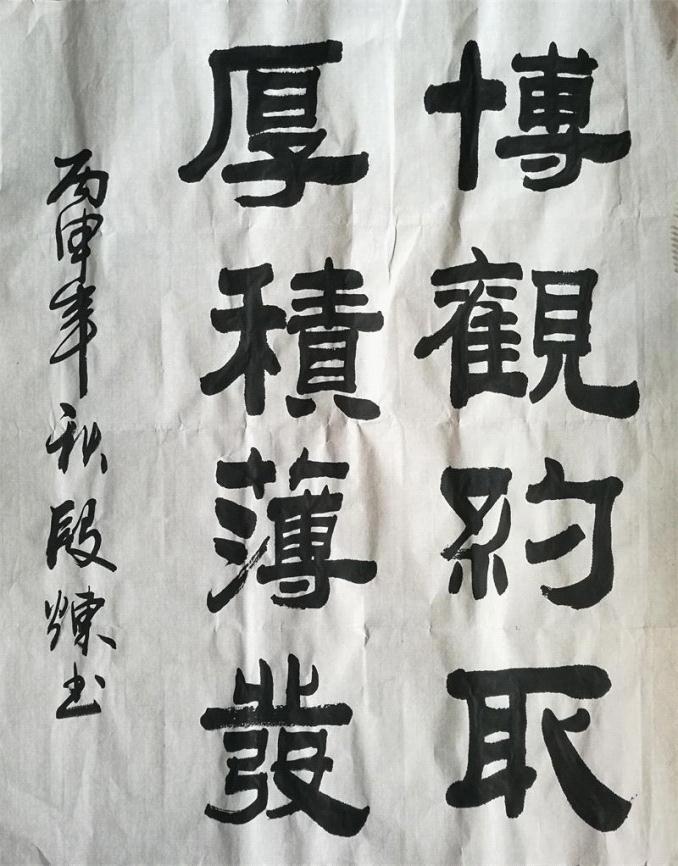 博觀約取
厚積薄發
丙申年秋段煉书